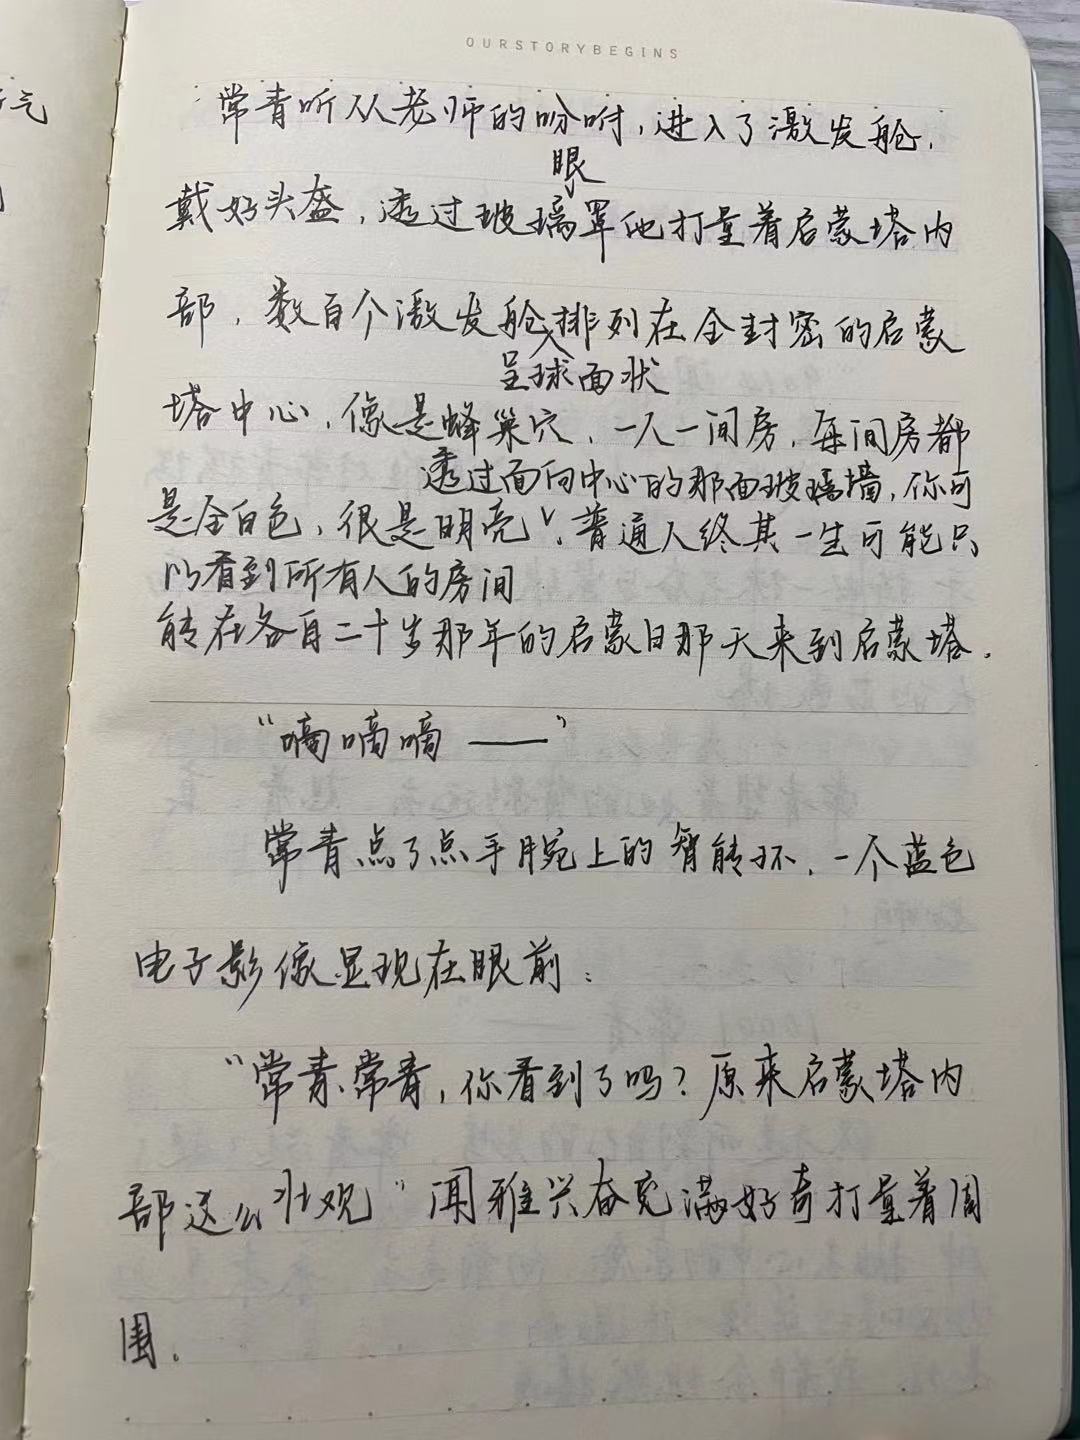 OURSTORYBEGINS
气
常青听从老师的吩咐，进入了激发舱，
眼
戴好头盔，透过玻璃罩他打量着启蒙塔内
部，数百个激发舱排列在全封密的启蒙
呈球面状
塔中心，像是蜂巢穴，一人一间房，每间房都
透过面向中心的那面玻璃墙，你可
是全白色，很是明亮。普通人终其一生可能只
以看到所有人的房间
能在各自二十岁那年的启蒙日那天来到启蒙塔。
“嘀嘀嘀——”
常青点了点手腕上的智能环，一个蓝色
电子影像显现在眼前：
“常青、常青，你看到了吗？原来启蒙塔内
部这么壮观”闻雅兴奋充满好奇打量着周
围。